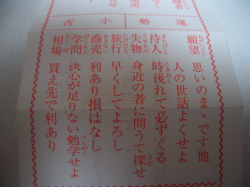 運勢 小吉
願望 思いのまゝです他
人の世話よくせよ
待人 時後れて必ずくる
失物 身近の者に問うて探せ
旅行 早くしてよろし
商売 利あり損はなし
学問 決心が足りない勉学せよ
相場 買え先で利あり